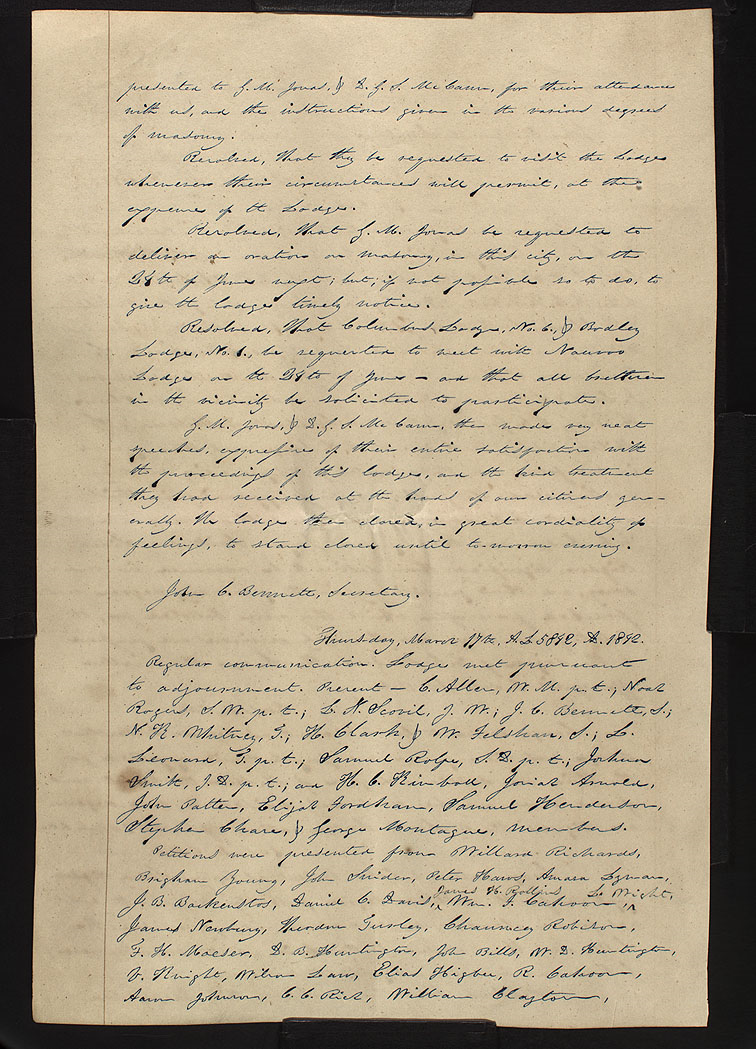 presented to G. M. Jonas, & D. G. S. McCann, for their attendance
with us, and the instructions given in the various degrees
of masonry.
Resolved, That they be requested to visit the Lodge
whenever their circumstances will permit, at the
expense of the Lodge.
Resolved, That G. M. Jonas be requested to
deliver an oration on masonry, in this city, on the
24th of June next; but, if not possible so to do, to
give the lodge timely notice.
Resolved, That Columbus Lodge, No. 6., & Bodley
Lodge, No. 1., be requested to meet with Nauvoo
Lodge on the 24th of June – and that all brethren
in the vicinity be solicited to participate.
G. M. Jonas, & D. G. S. McCann, then made very neat
speeches, expressive of their entire satisfaction with
the proceedings of this lodge, and the kind treatment
they had received at the hands of our citizens gen-
erally. The lodge then closed, in great cordiality of
feelings, to stand closed until to-morrow evening.
John C. Bennett, Secretary.
Thursday, March 17th, A. L. 5842, A. D. 1842.
Regular communication. Lodge met pursuant
to adjournment. Present – C. Allen, W. M. p. t.; Noah
Rogers, S. W. p. t.; L. N. Scovil, J. W.; J. C. Bennett, S.;
N. K. Whitney, T.; H. Clark, & W. Felshaw, S.; L.
Leonard, T. p. t.; Samuel Rolfe, S. D. p. t.; Joshua
Smith, J. D. p. t.; and H. C. Kimball, Josiah Arnold,
John Patten, Elijah Fordham, Samuel Henderson,
Stephen Chase, & George Montague, members.
Petitions were presented from Willard Richards,
Brigham Young, John Snider, Peter Haws, Amasa Lyman,
J. B. Backenstos, Daniel C. Davis, James H. Rollins, Wm. F. Cahoon, L. Wright,
James Newbury, Theodore Turley, Chauncey Robison,
F. H. Moeser, D. B. Huntington, John Bills, W. D. Huntington,
V. Knight, Wilson Law, Elias Higbee, R. Cahoon,
Aaron Johnson, C. C. Rich, William Clayton,